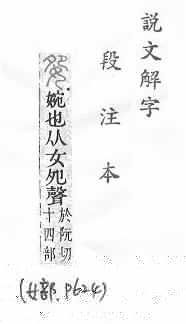 說文解字
段注本
妴 婉也从女夗聲
於阮切
十四部
(女部.P624)